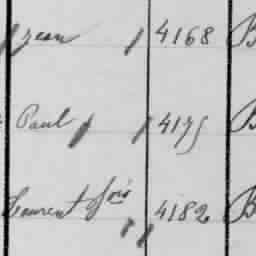 Jean 4168 B
Paul 4175 B
Laurent fois 4182 B